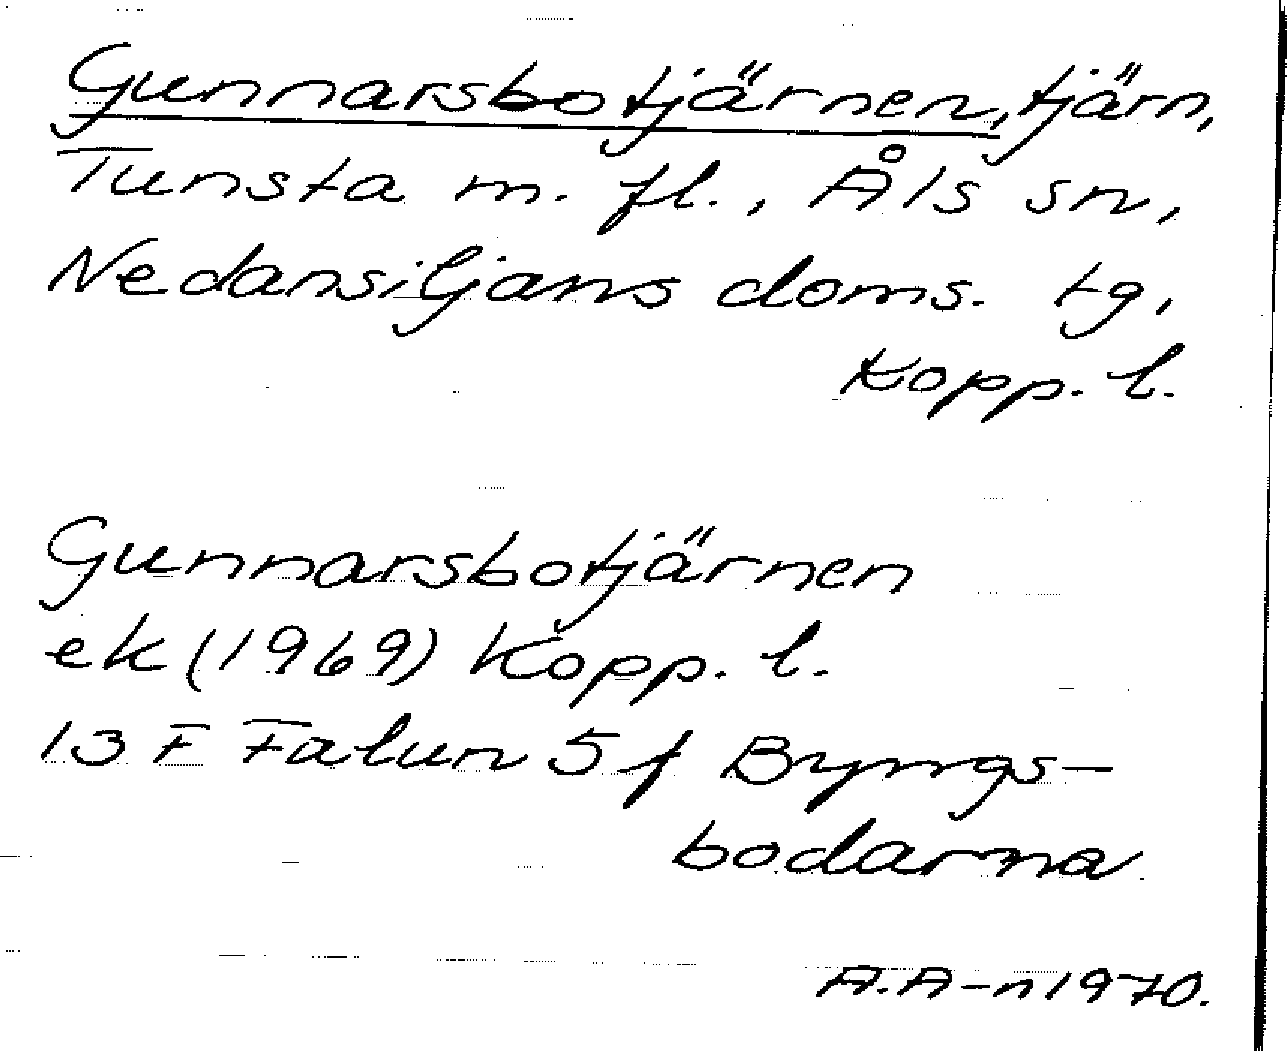 Gunnarsbotjärnen, tjärn,
Tunsta m. fl., Åls sn,
Nedansiljans doms. tg,
Kopp. l.
Gunnarsbotjärnen
ek (1969) Kopp. l.
13 F Falun 5 f Byngs-
bodarna
A.A-n 1970.